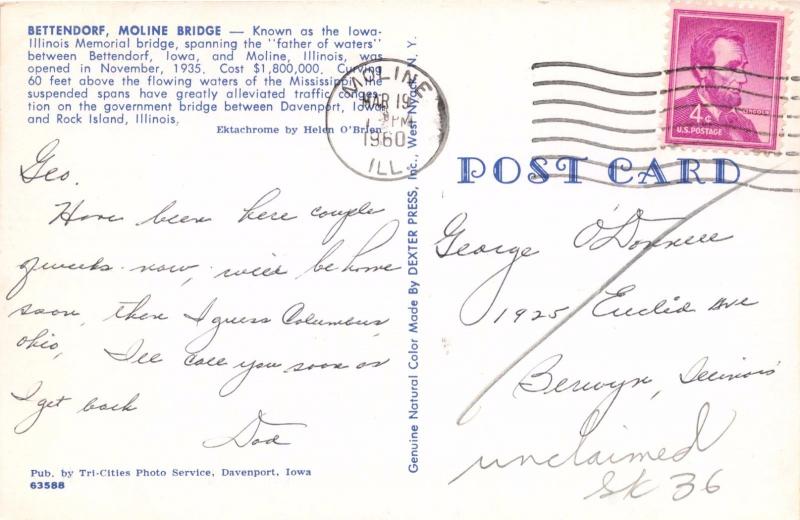 BETTENDORF, MOLINE BRIDGE — Known as the Iowa-
Illinois Memorial bridge, spanning the "father of waters"
between Bettendorf, Iowa, and Moline, Illinois, was
opened in November, 1935. Cost $1,800,000. Curving
60 feet above the flowing waters of the Mississippi, the
suspended spans have greatly alleviated traffic conges-
tion on the government bridge between Davenport, Iowa
and Rock Island, Illinois.
Ektachrome by Helen O'Brien
Geo.
Have been here couple
of weeks now, will be home
soon, then I guess Columbus,
Ohio, I'll call you soon as
I get back
Dad
Pub. by Tri-Cities Photo Service, Davenport, Iowa
63588
Genuine Natural Color Made By DEXTER PRESS, Inc., West Nyack, N. Y.
MOLINE
MAR 19
PM
1960
ILL.
4¢
LINCOLN
U.S. POSTAGE
POST CARD
George O'Donnell
1925 Euclid Ave
Berwyn, Illinois
unclaimed
SK 36